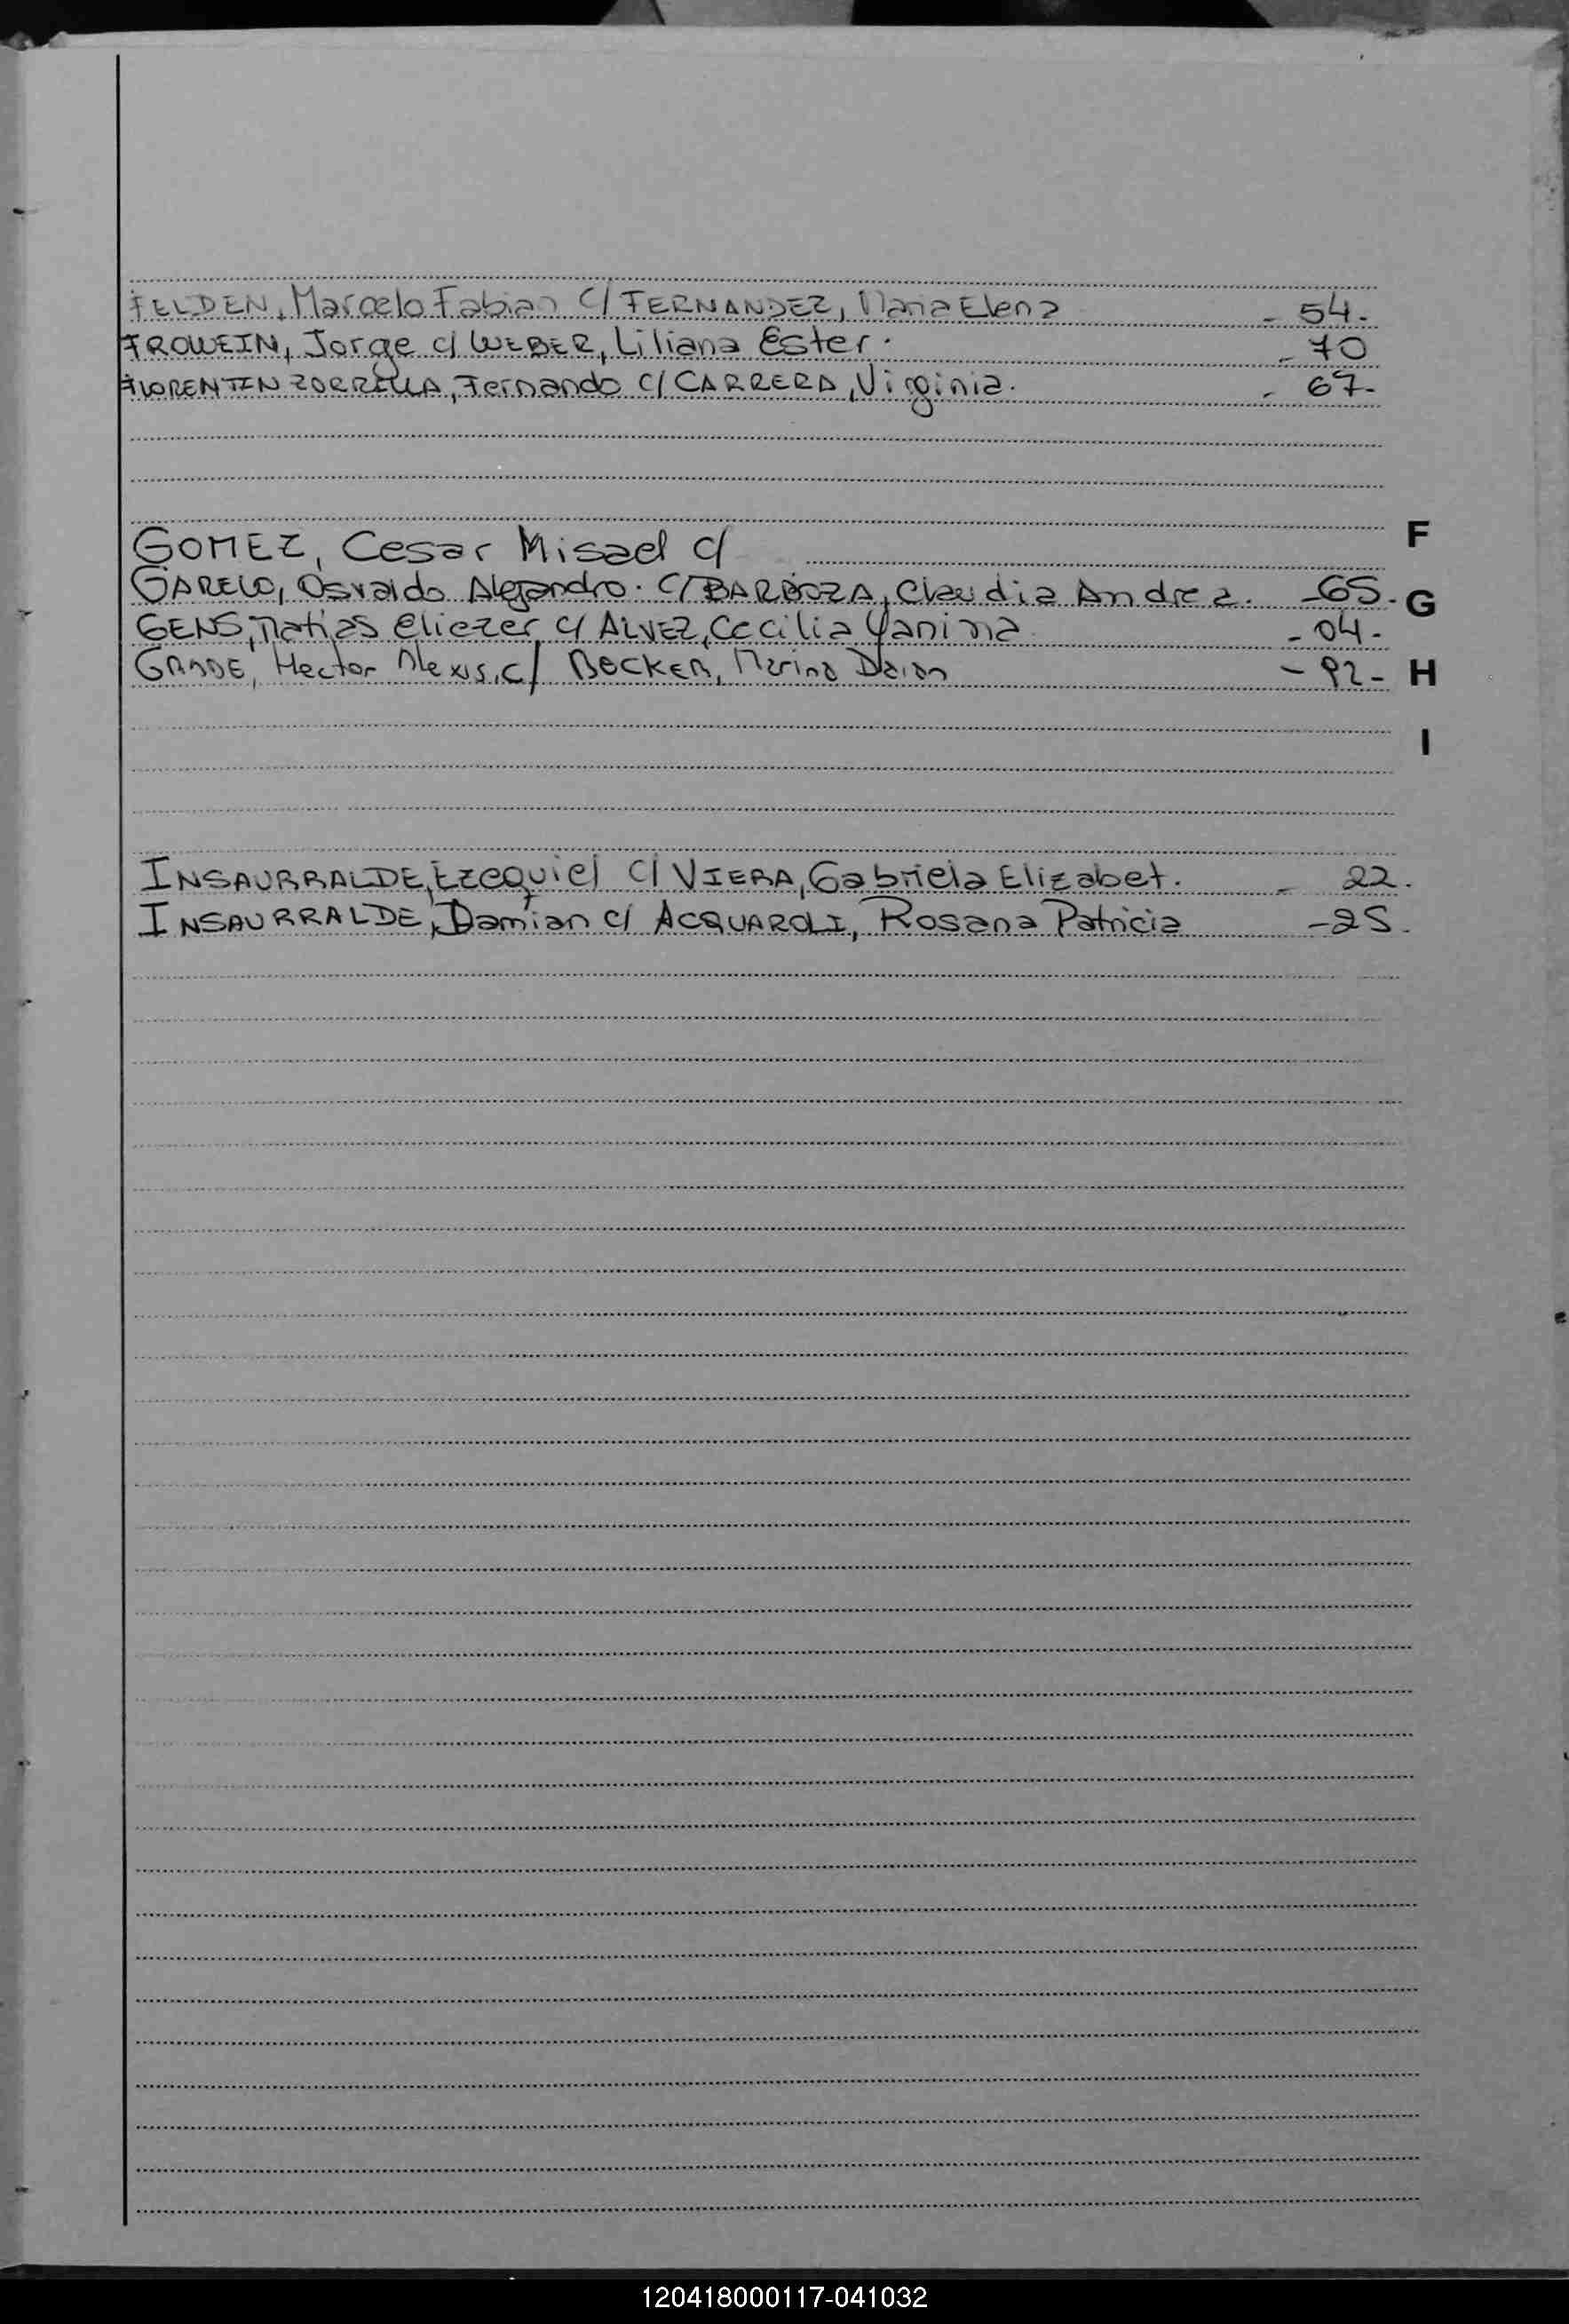 FELDEN, Marcelo Fabian C/ FERNANDEZ, Maria Elena - 54.
FROWEIN, Jorge c/ WEBER, Liliana Ester. - 70
FLORENTIN ZORRILLA, Fernando C/ CARRERA, Virginia. - 67-
F
GOMEZ, Cesar Misael c/
GARELO, Osvaldo Alejandro. C/ BARBOZA, Claudia Andrea. -65-
G
GENS, Matias eliezer c/ ALVEZ, Cecilia Yanina - 04-
GRADE, Hector Alexis, c/ BECKER, Marina Daian - 92-
H
I
INSAURRALDE, Ezequiel C/ VIERA, Gabriela Elizabet. - 22.
INSAURRALDE, Damian c/ ACQUAROLI, Rosana Patricia -25.
120418000117-041032